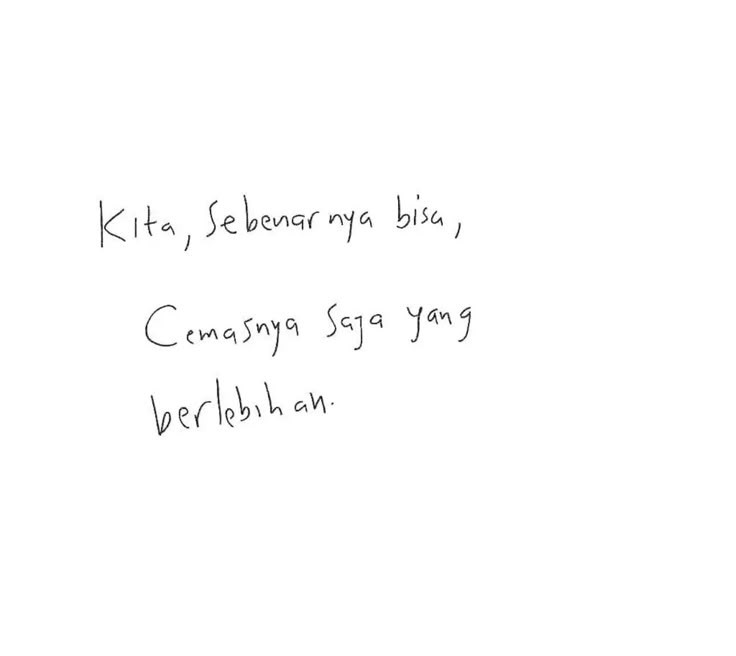 Kita, Sebenarnya bisa,
Cemasnya Saja yang
berlebihan.